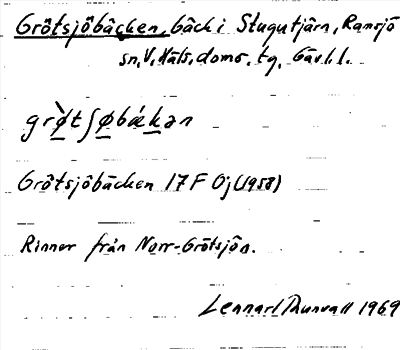 Grötsjöbäcken, bäck i Stugutjärn, Ramsjö
sn, V. Häls. doms. tg, Gävl. l.
grø̀tʃøbækən
Grötsjöbäcken 17 F Öj (1958)
Rinner från Norr-Grötsjön.
Lennart Thunvall 1969